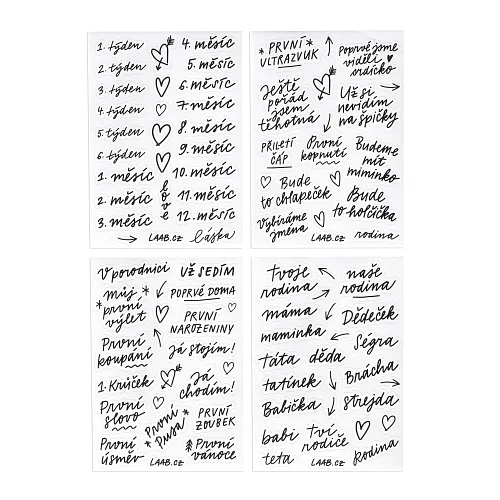 1. týden
2. týden
3. týden
4. týden
5. týden
6. týden
1. měsíc
2. měsíc
3. měsíc
4. měsíc
5. měsíc
6. měsíc
7. měsíc
8. měsíc
9. měsíc
10. měsíc
11. měsíc
12. měsíc
love
LAAB.CZ
láska
* PRVNÍ *
ULTRAZVUK
Poprvé jsme
viděli
srdíčko
Ještě
pořád
jsem
těhotná
Už si
nevidím
na špičky
PŘILETÍ
ČÁP
První
kopnutí
Budeme
mít
miminko
Bude
to chlapeček
Bude
to holčička
Vybíráme
jména
LAAB.CZ
rodina
V porodnici
UŽ SEDÍM
* můj *
první
výlet
POPRVÉ DOMA
PRVNÍ
NAROZENINY
První
koupání
Já stojím!
1. Krůček
Já
chodím!
První
slovo
První
Pusa
*
PRVNÍ
ZOUBEK
První
úsměv
První
vánoce
LAAB.CZ
Tvoje
rodina
naše
rodina
máma
maminka
Dědeček
Ségra
táta děda
tatínek
Brácha
Babička
strejda
babi
teta
Tví
rodiče
Rodina
LAAB.CZ